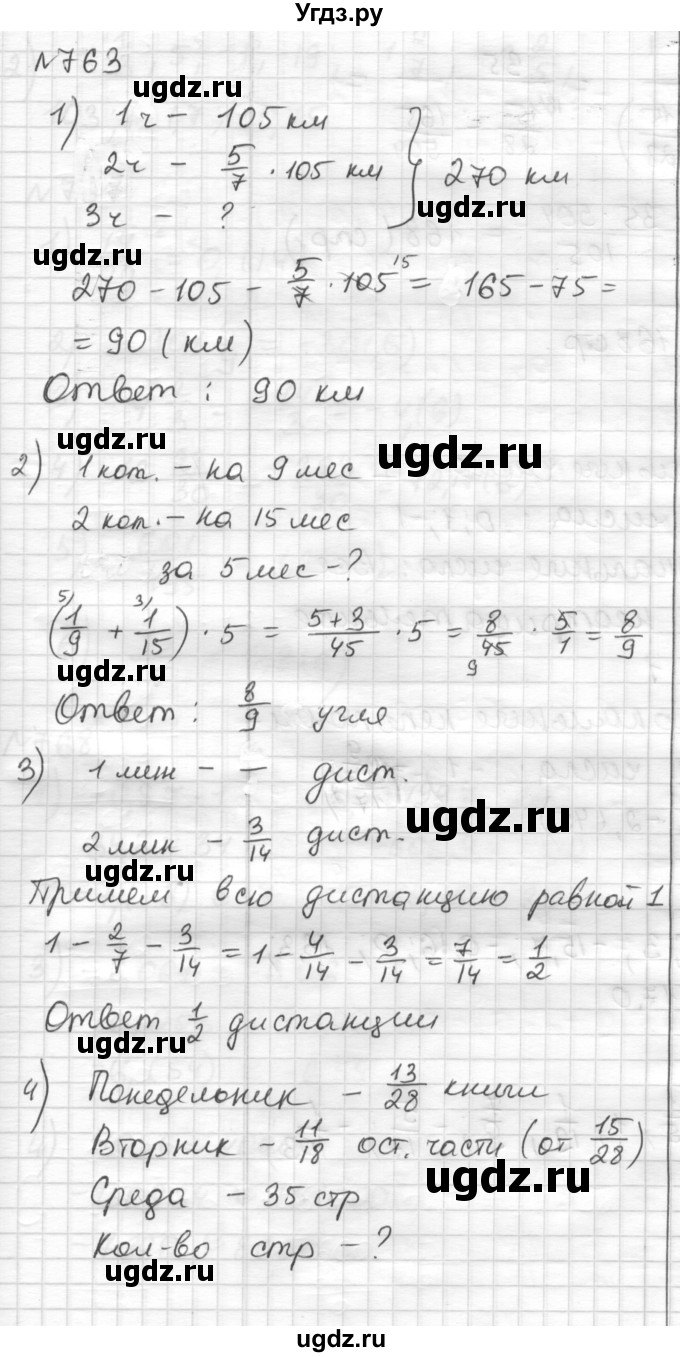 Угдз.ру
№763
ugdz.ru
1) 1ч – 105 км
2ч – 5/7 · 105 км } 270 км
3ч – ?
ugdz.ru
270 – 105 – 5/7 · 105 15 = 165 – 75 =
= 90 (км)
ugdz.ru
Ответ : 90 км
ugdz.ru
ugdz.ru
2) 1 кот. – на 9 мес
2 кот. – на 15 мес
за 5 мес – ?
(5) 1/9 + 3) 1/15) · 5 = 5+3/45 · 5 = 8/45 9 · 5/1 = 8/9
ugdz.ru
Ответ : 8/9 угля
3) 1 мин – – дист.
ugdz.ru
2 мин – 3/14 дист.
ugdz.ru
Примем всю дистанцию равной 1
1 – 2/7 – 3/14 = 1 – 4/14 – 3/14 = 7/14 = 1/2
Ответ 1/2 дистанции
ugdz.ru
4) Понедельник – 13/28 книги
Вторник – 11/18 ост. части (от 15/28)
ugdz.ru
Среда – 35 стр
Кол-во стр – ?
ugdz.ru
ugdz.ru